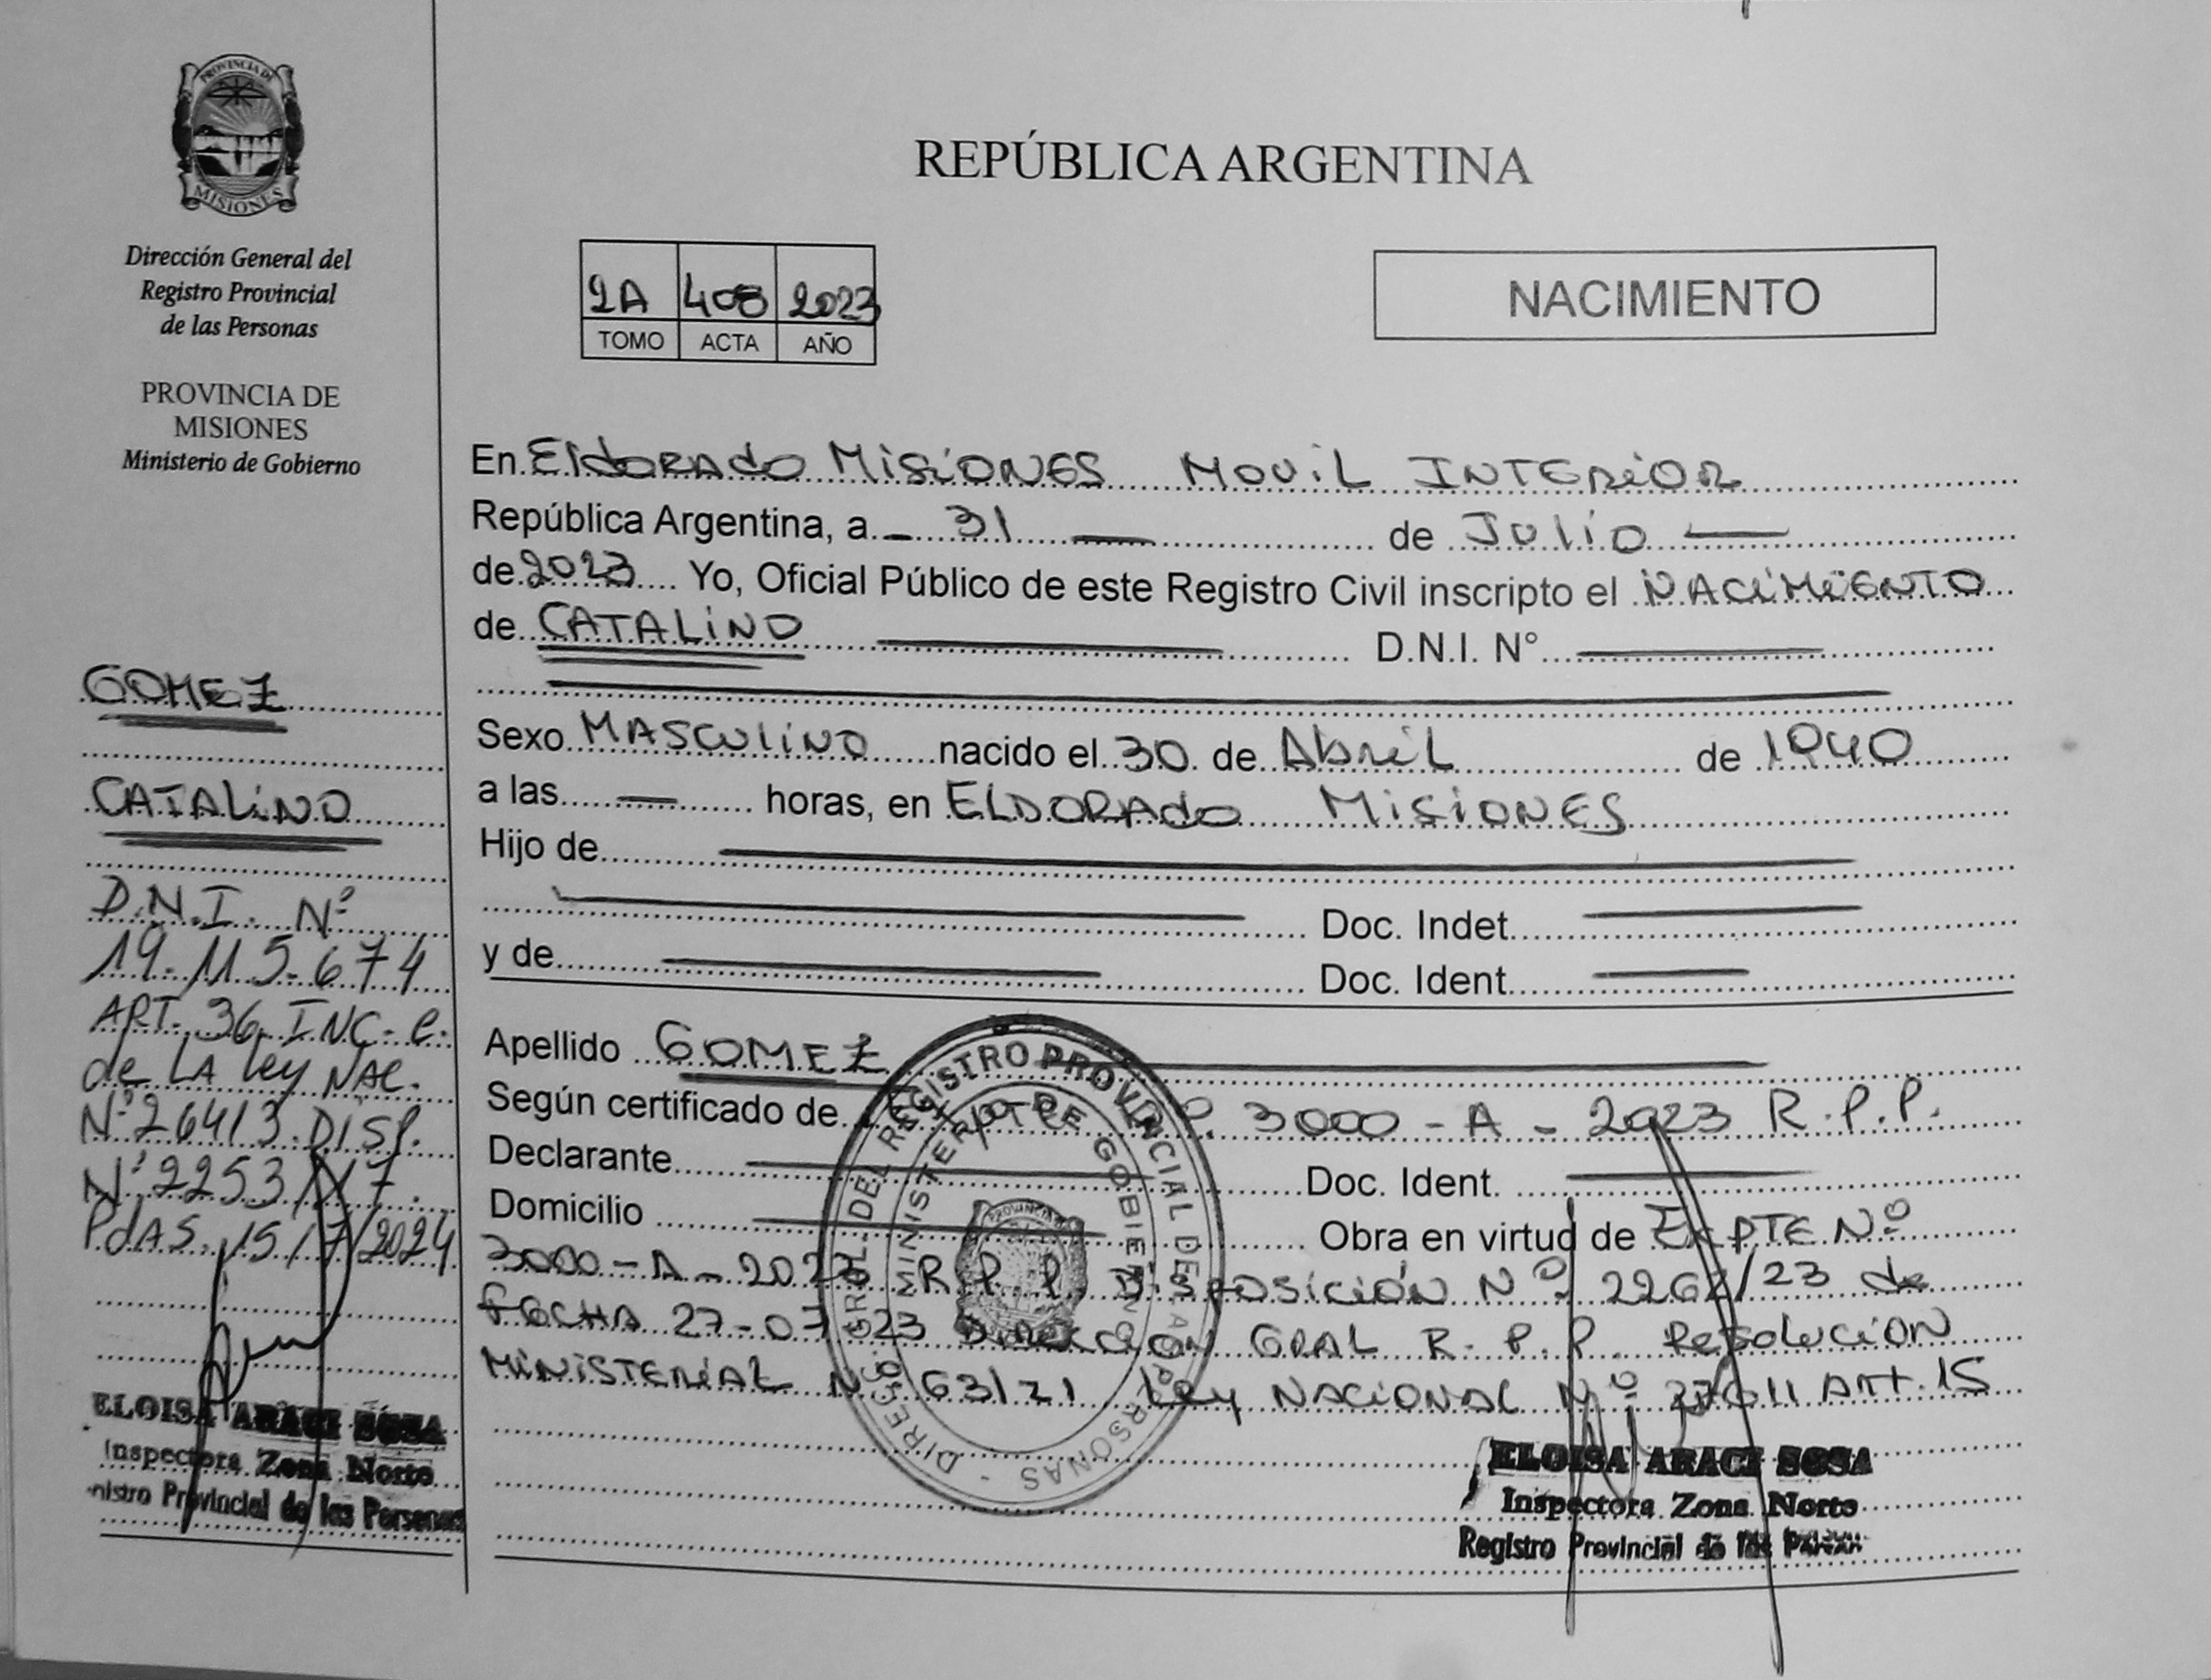 PROVINCIA DE
MISIONES
Dirección General del
Registro Provincial
de las Personas
PROVINCIA DE
MISIONES
Ministerio de Gobierno
GOMEZ
CATALINO
D.N.I. Nº
19.115.674
ART. 36 INC. C.
de LA Ley NAC.
Nº 26413 DISP.
Nº 2253/17.
PdAS. 15/7/2024
ELOISA ARACI SOSA
Inspectora Zona Norte
Provincial de las Personas
REPÚBLICA ARGENTINA
2A 408 2023
TOMO ACTA AÑO
NACIMIENTO
En ElDORAdO MISIONES MOVIL INTERIOR
República Argentina, a 31 de Julio
de 2023 Yo, Oficial Público de este Registro Civil inscripto el NACIMIENTO
de CATALINO D.N.I. N°
Sexo MASCULINO nacido el 30 de Abril de 1940
a las horas, en ELDORAdO MISIONES
Hijo de
Doc. Indet.
y de Doc. Ident.
Apellido GOMEZ
Según certificado de 3000 - A - 2023 R.P.P.
Declarante Doc. Ident.
Domicilio Obra en virtud de EXPTE Nº
3000 - A - 2023 R.P.P. DISPOSICIÓN Nº 2262/23 de
FECHA 27-07-23 DIRECCION GRAL R.P.P. RESOLUCION
MINISTERIAL Nº 63/21 Ley NACIONAL Nº 27611 ART. 15
DIRECC. GRAL. DEL REGISTRO PROVINCIAL DE LAS PERSONAS
MINISTERIO DE GOBIERNO
ELOISA ARACI SOSA
Inspectora Zona Norte
Registro Provincial de las